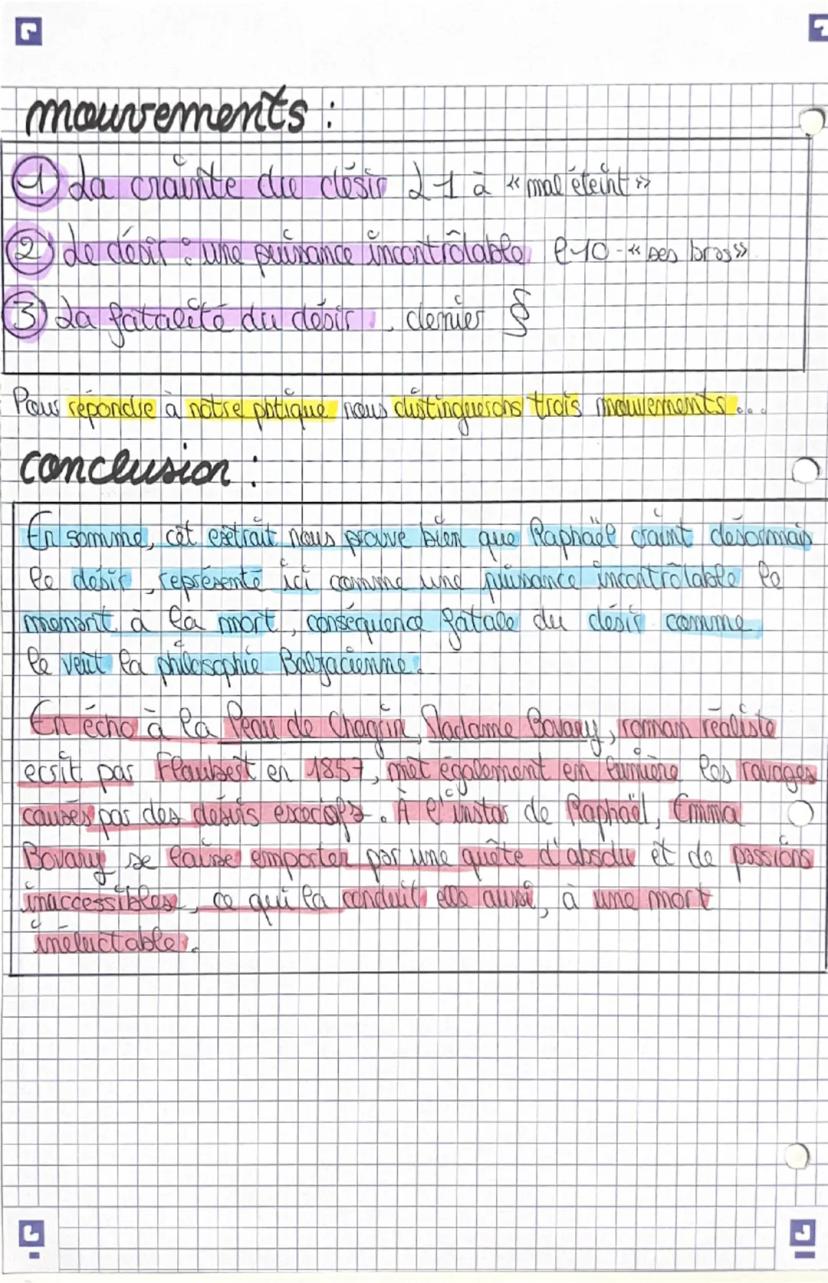 mouvements :
① La crainte du désir L1 à « mal éteint »
② Le désir : une puissance incontrôlable l10 - « ses bras »
③ La fatalité du désir, dernier §
Pour répondre à notre pbtique nous distinguerons trois mouvements...
conclusion :
En somme, cet extrait nous prouve bien que Raphaël craint désormais
le désir, représenté ici comme une puissance incontrôlable le
menant à la mort, conséquence fatale du désir comme
le veut la philosophie Balzacienne.
En écho à la Peau de Chagrin, Madame Bovary, roman réaliste
ecrit par Flaubert en 1857, met également en lumière les ravages
causés par des désirs excessifs. À l'instar de Raphaël, Emma
Bovary se laisse emporter par une quête d'absolu et de passions
inaccessibles, ce qui la conduit elle aussi, à une mort
inéluctable.